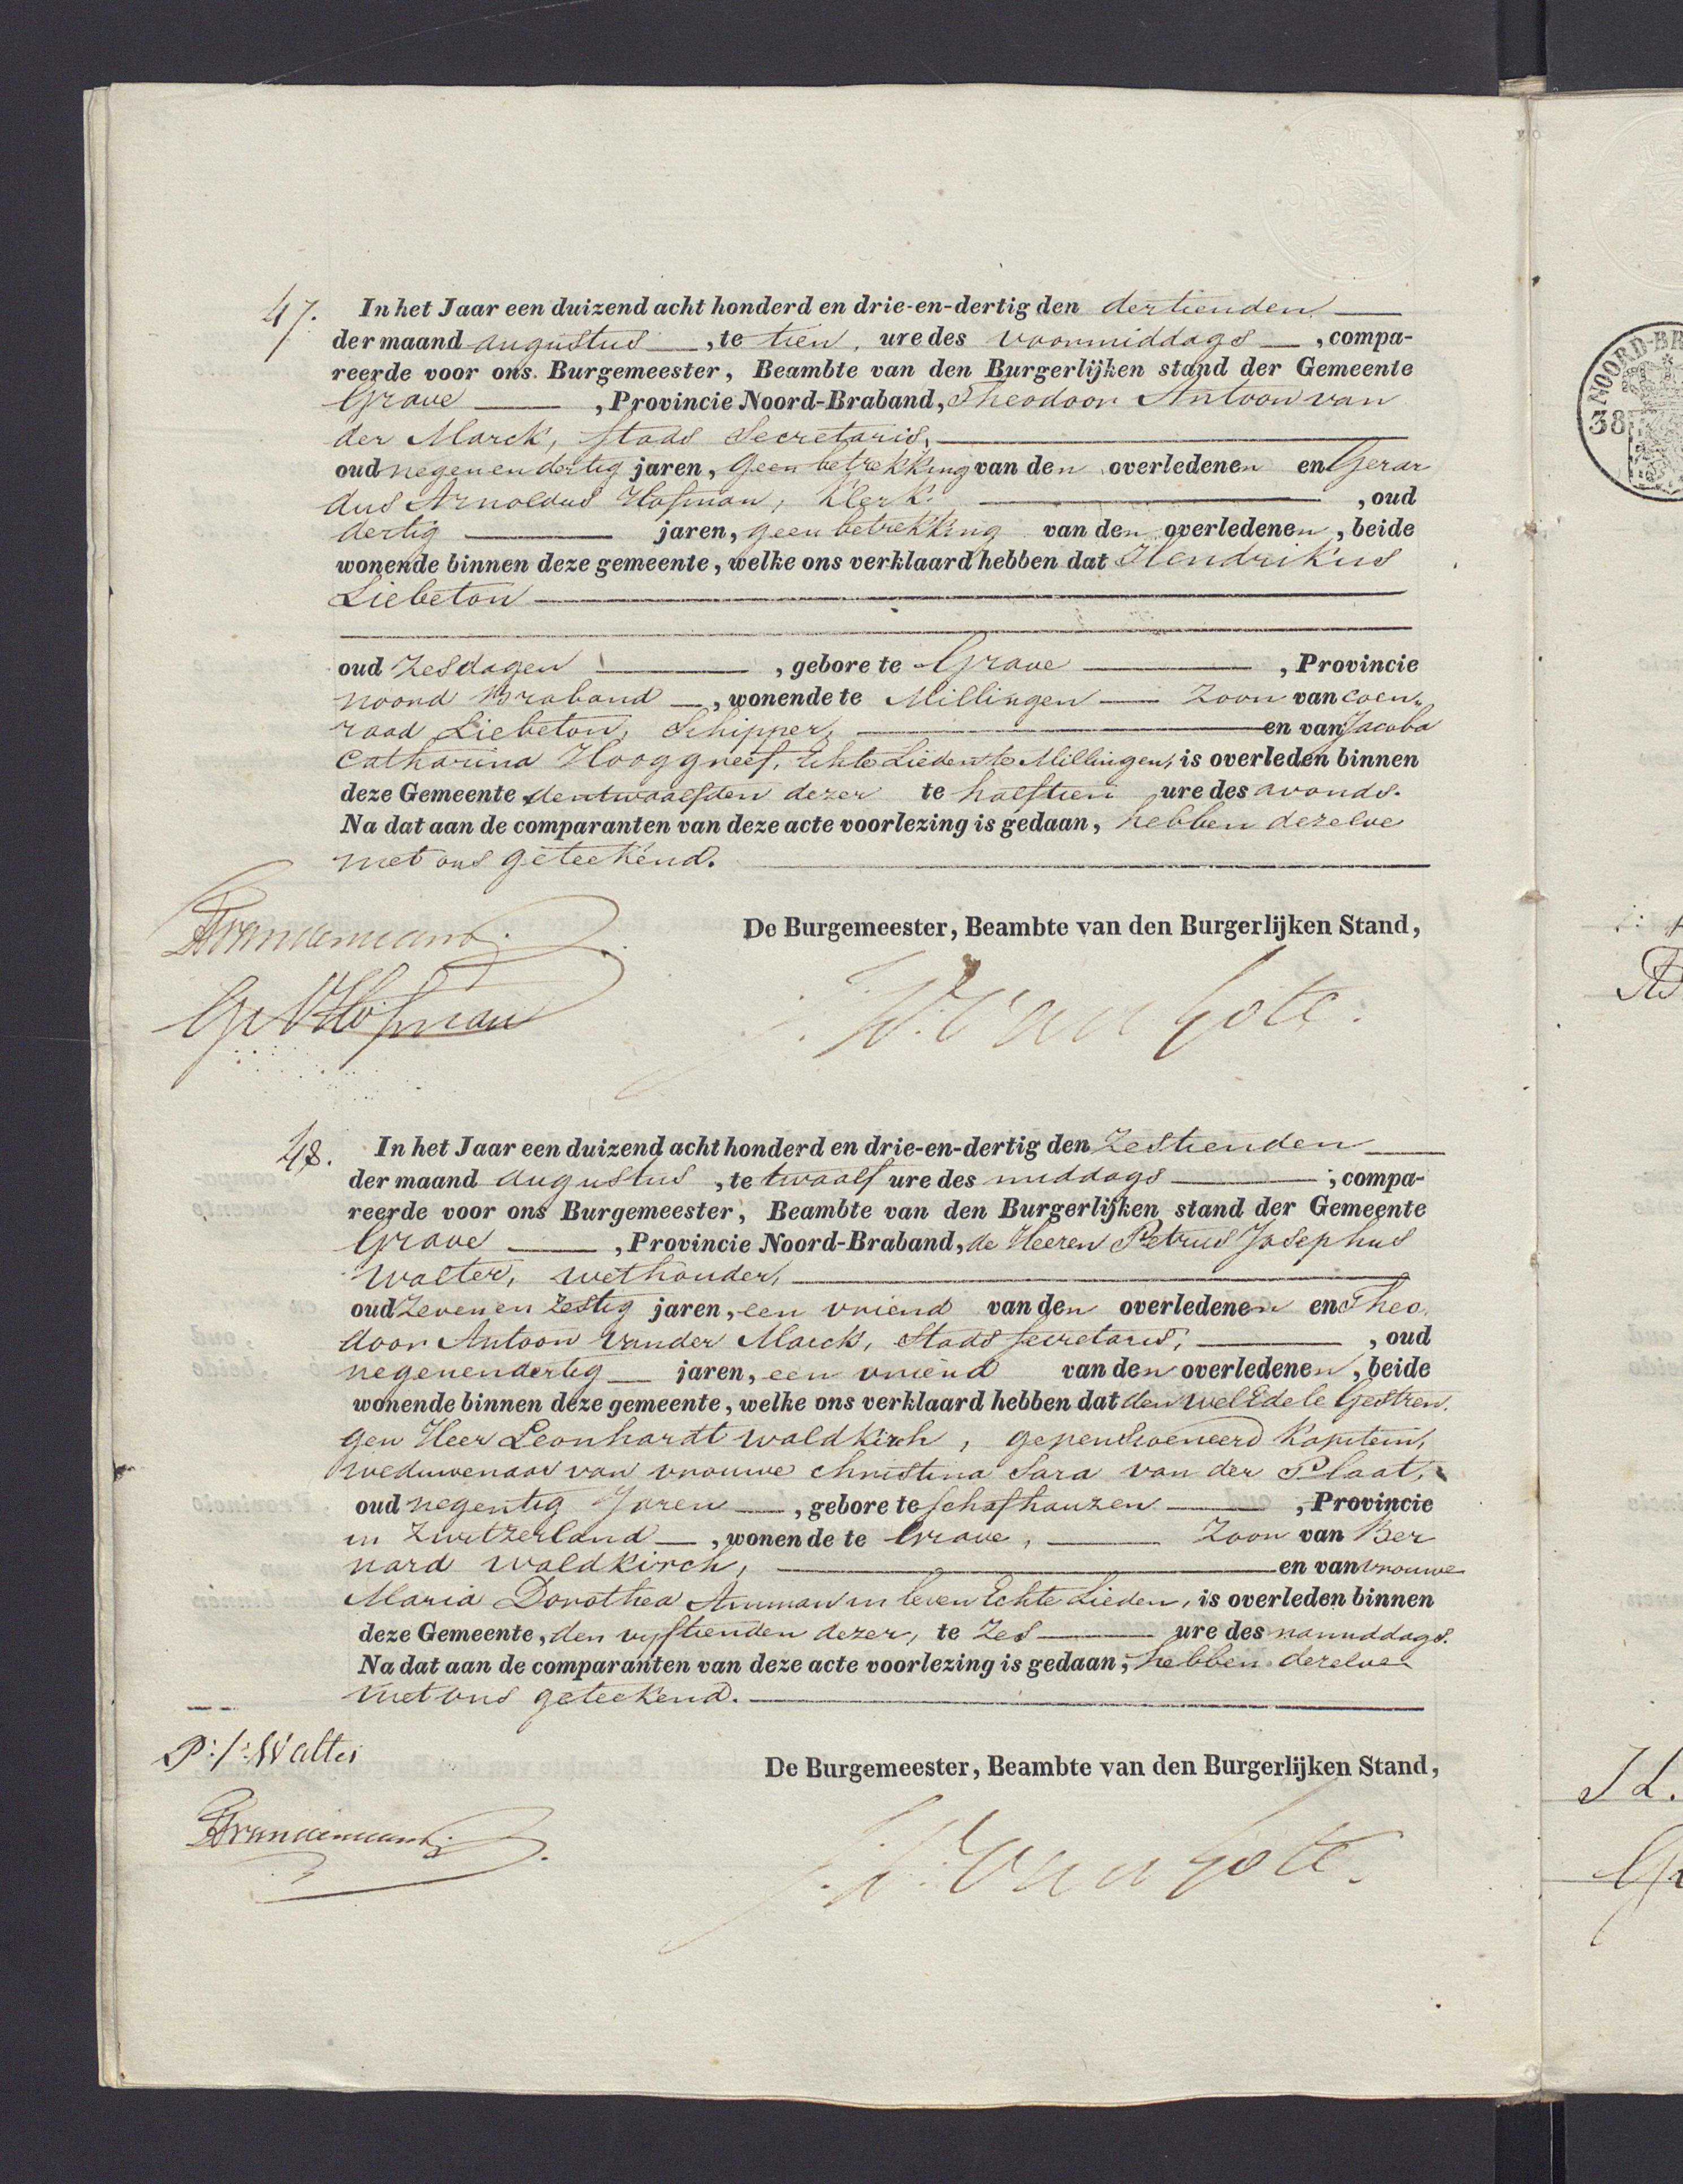 47. In het Jaar een duizend acht honderd en drie-en-dertig den dertienden
der maand augustus, te tien, ure des voormiddags, compa-
reerde voor ons Burgemeester, Beambte van den Burgerlijken stand der Gemeente
Grave, Provincie Noord-Braband, Theodoor Antoon van
der Marck, stads Secretaris,
oud negenendertig jaren, geen betrekking van den overledenen en Gerar
dus Arnoldus Hofman, Klerk, oud
dertig jaren, geen betrekking van den overledenen, beide
wonende binnen deze gemeente, welke ons verklaard hebben dat Hendrikus
Liebeton
oud Zes dagen, gebore te Grave, Provincie
noord Braband, wonende te Millingen Zoon van Coen„
raad Liebeton, Schipper, en van Jacoba
Catharina Hooggreef, Echte Lieden te Millingen, is overleden binnen
deze Gemeente, den twaalfden dezer te half tien ure des avonds.
Na dat aan de comparanten van deze acte voorlezing is gedaan, hebben dezelve
met ons geteekend.
De Burgemeester, Beambte van den Burgerlijken Stand,
Hofman
48. In het Jaar een duizend acht honderd en drie-en-dertig den Zestienden
der maand augustus, te twaalf ure des middags, compa-
reerde voor ons Burgemeester, Beambte van den Burgerlijken stand der Gemeente
Grave, Provincie Noord-Braband, de Heeren Petrus Josephus
Walter, wethouder,
oud Zeven en Zestig jaren, een vriend van den overledenen en Theo
door Antoon vander Marck, Stads secretaris, oud
negenendertig jaren, een vriend van den overledenen, beide
wonende binnen deze gemeente, welke ons verklaard hebben dat den wel Edele Gestren.
gen Heer Leonhardt waldkirch, gepensioeneerd Kapitein,
weduwenaar van vrouwe Christina Sara van der Plaat,
oud negentig Jaren, gebore te Schafhauzen, Provincie
in Zwitzerland, wonende te Grave, Zoon van Ber
nard waldkirch, en van vrouwe
Maria Dorothea Amman in leven Echte Lieden, is overleden binnen
deze Gemeente, den vijftienden dezer, te Zes ure des namiddags.
Na dat aan de comparanten van deze acte voorlezing is gedaan, hebben dezelve
met ons geteekend.
P: J: Walter
De Burgemeester, Beambte van den Burgerlijken Stand,
NOORD-BR
38